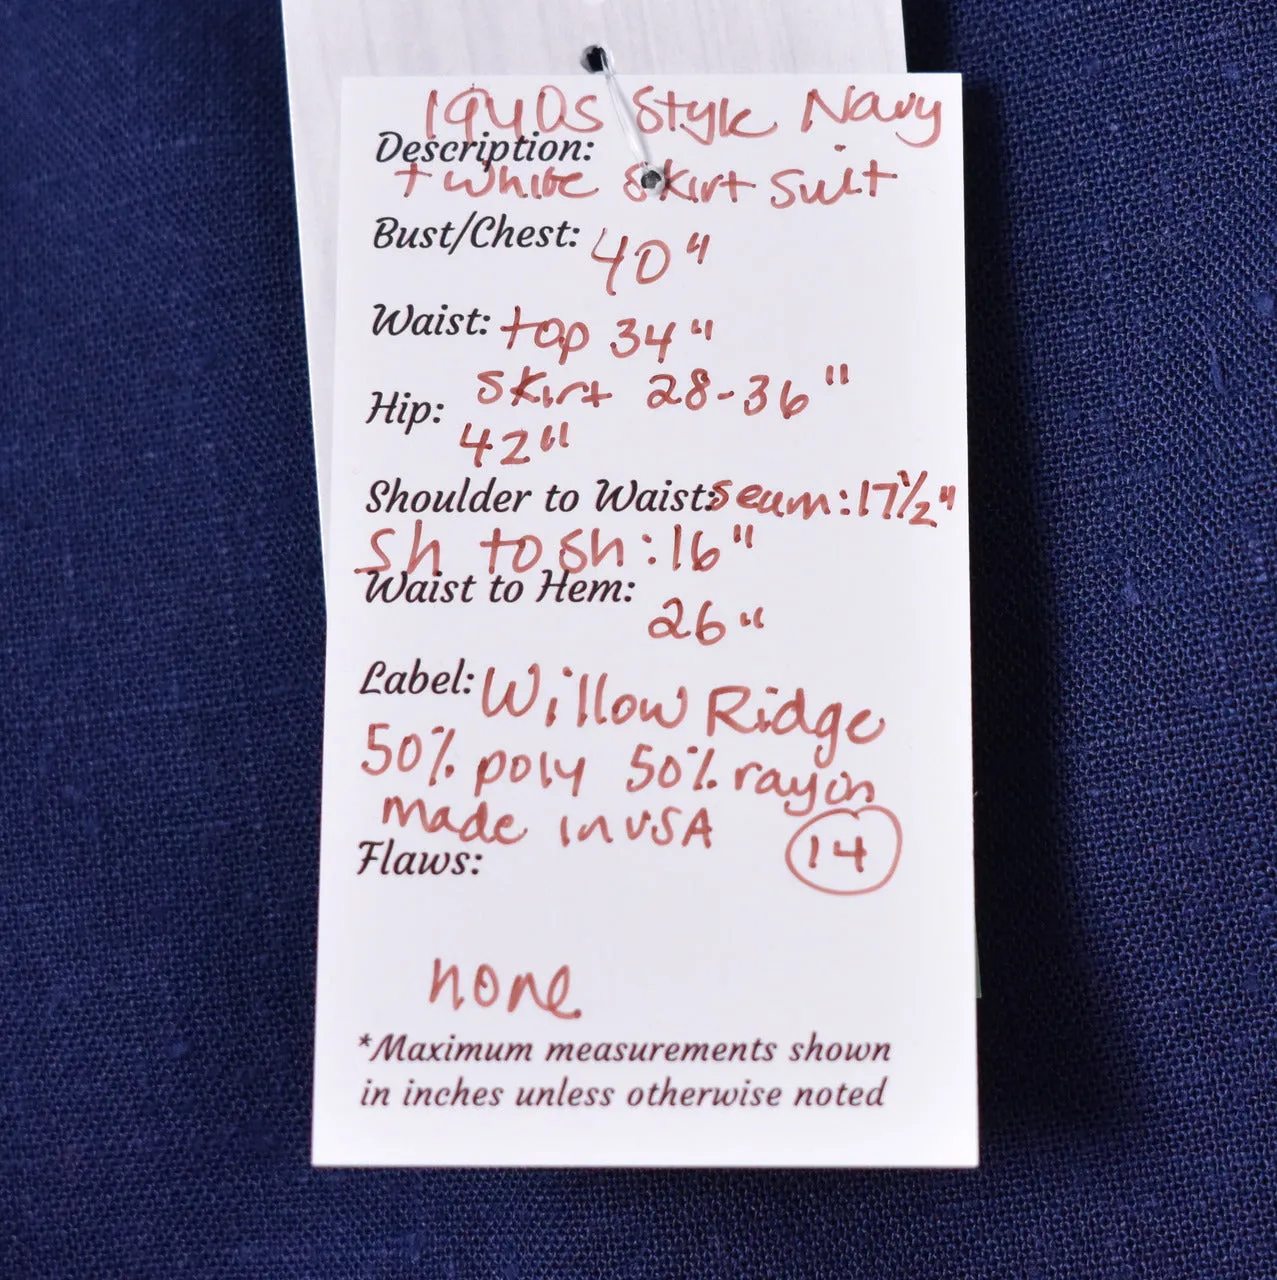 1940s Style Navy
Description:
+ white skirt suit
Bust/Chest: 40"
Waist: top 34"
skirt 28-36"
Hip: 42"
Shoulder to Waist: seam: 17 1/2"
sh to sh: 16"
Waist to Hem: 26"
Label: Willow Ridge
50% poly 50% rayon
made in USA
14
Flaws:
none
*Maximum measurements shown
in inches unless otherwise noted